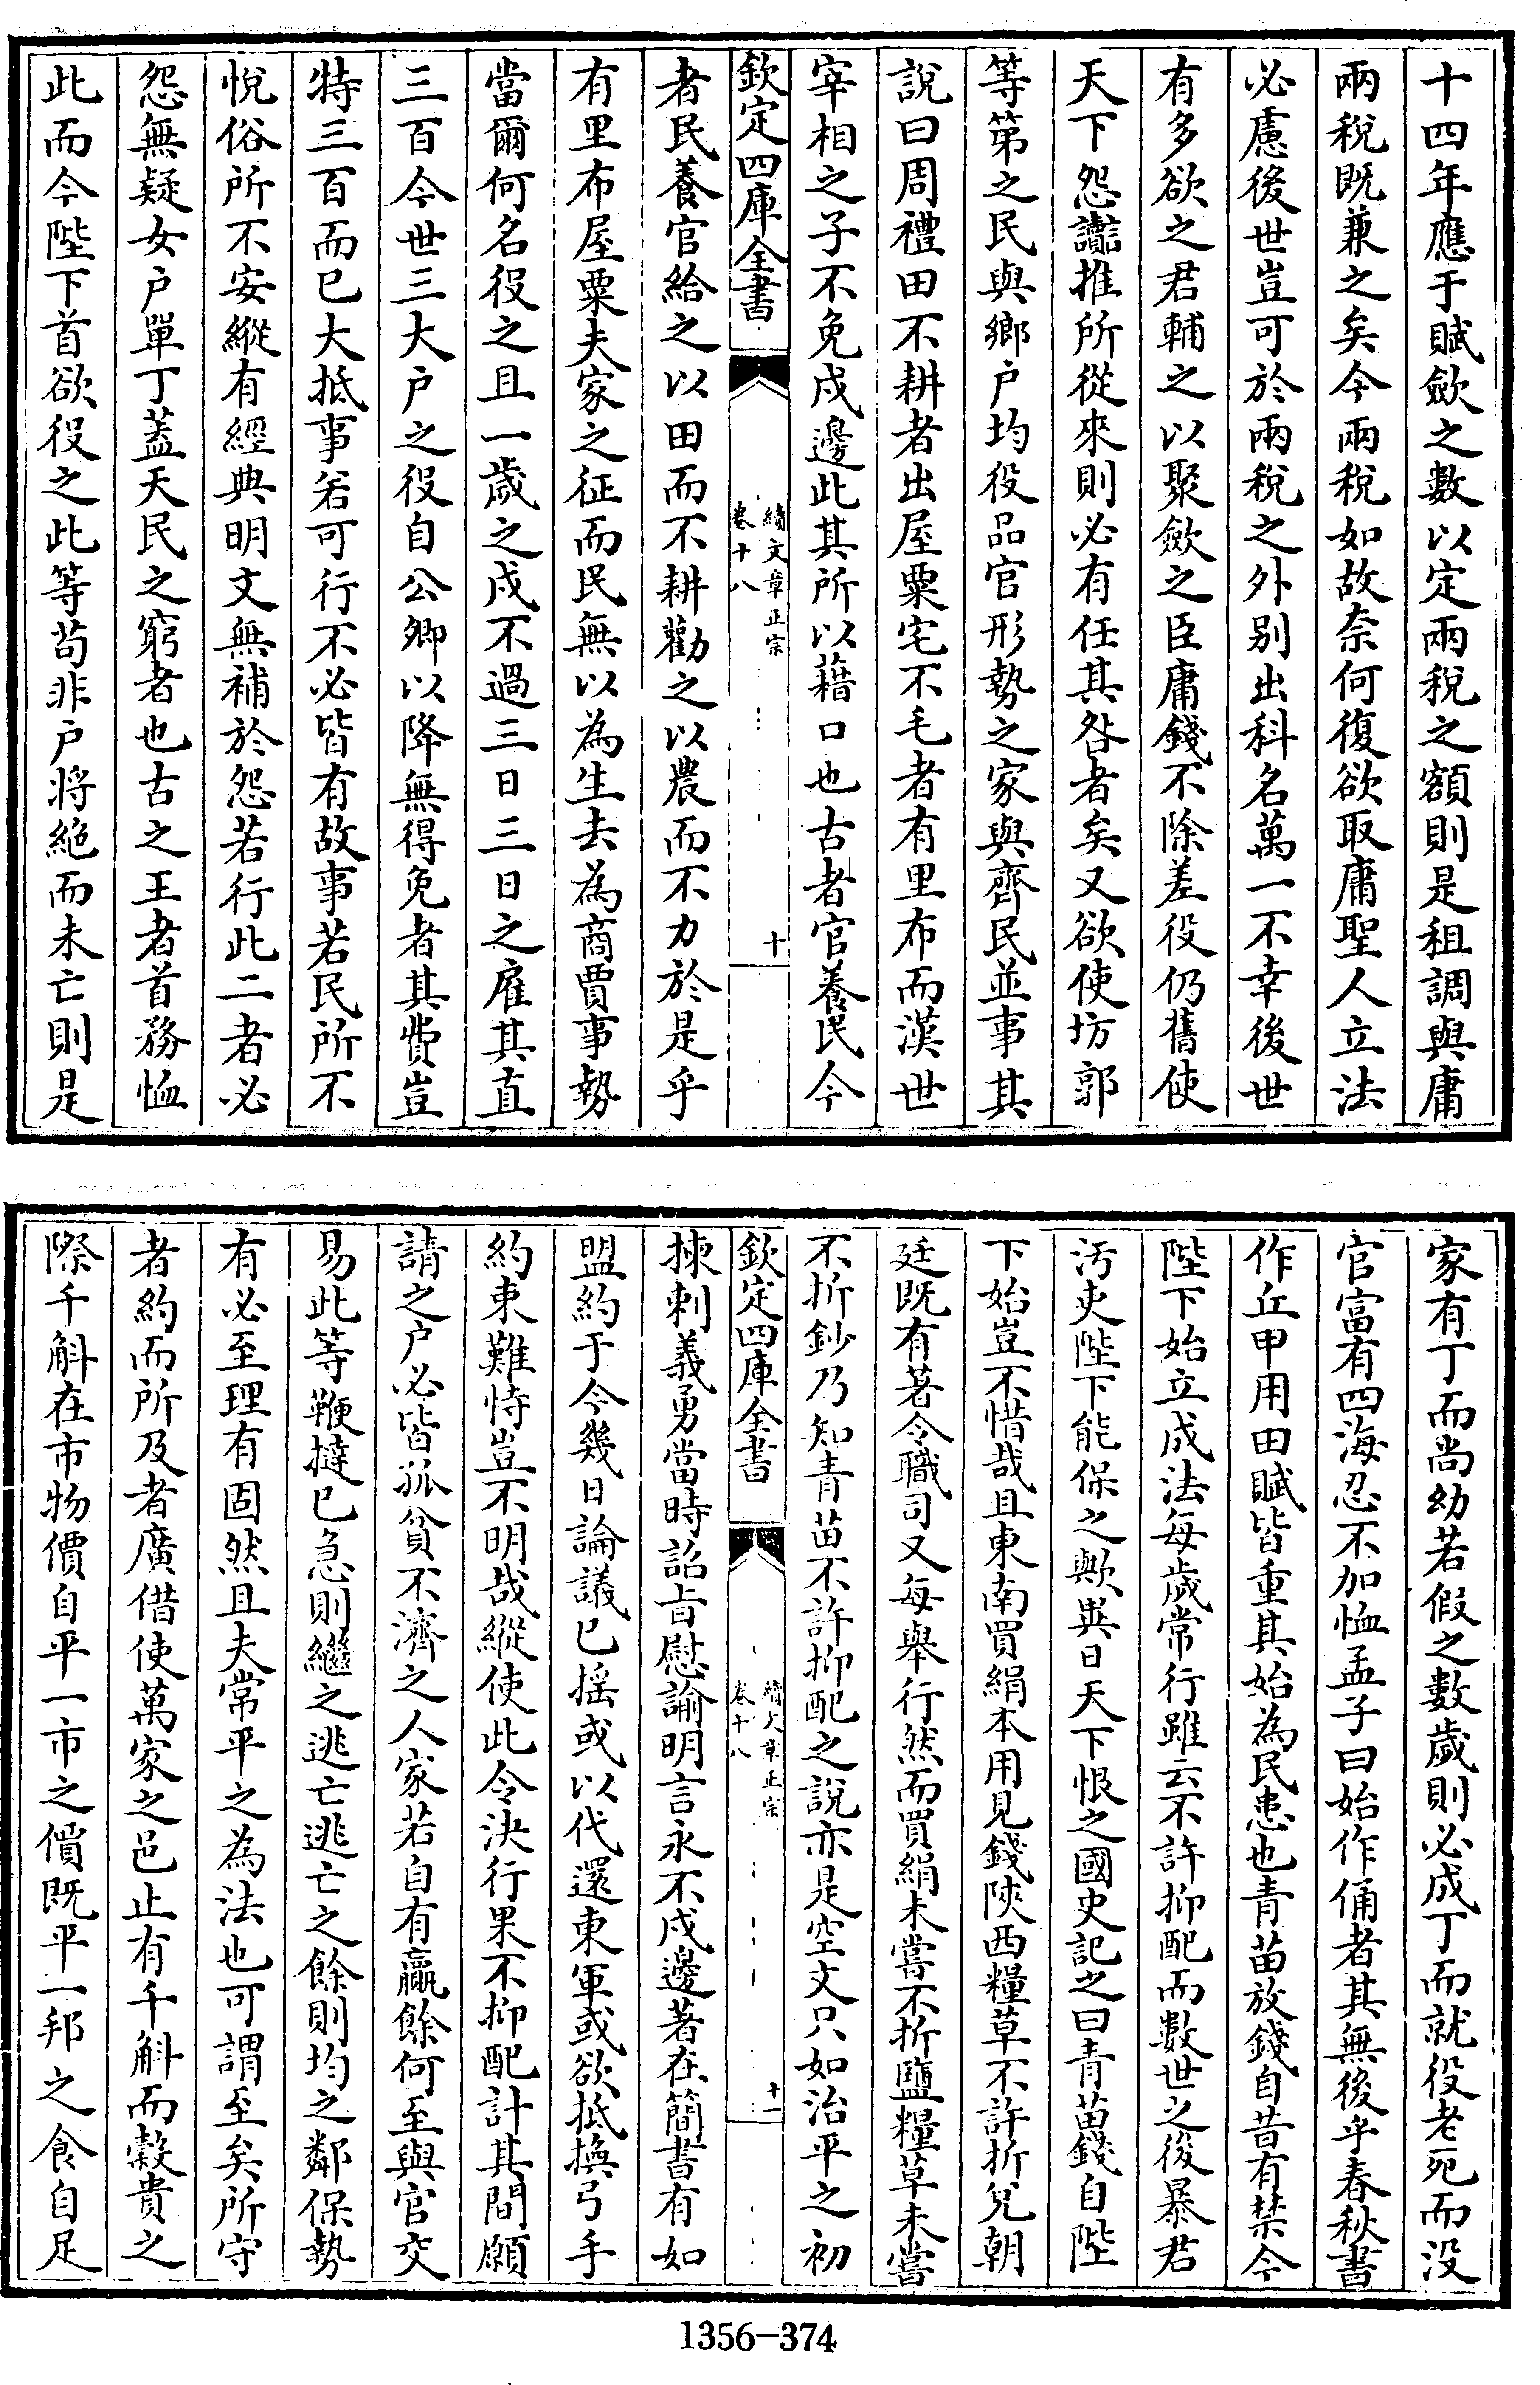 十四年應于賦歛之數以定兩稅之額則是租調與庸
兩稅既兼之矣今兩稅如故奈何復欲取庸聖人立法
必慮後世豈可於兩稅之外别出科名萬一不幸後世
有多欲之君輔之以聚歛之臣庸錢不除差役仍舊使
天下怨讟推所從來則必有任其咎者矣又欲使坊郭
等第之民與鄉户均役品官形勢之家與齊民並事其
說曰周禮田不耕者出屋粟宅不毛者有里布而漢世
宰相之子不免戍邊此其所以藉口也古者官養民今
欽定四庫全書
續文章正宗
卷十八
十
者民養官給之以田而不耕勸之以農而不力於是乎
有里布屋粟夫家之征而民無以為生去為商賈事勢
當爾何名役之且一歲之戍不過三日三日之雇其直
三百今世三大户之役自公卿以降無得免者其費豈
特三百而已大抵事若可行不必皆有故事若民所不
悅俗所不安縱有經典明文無補於怨若行此二者必
怨無疑女户單丁蓋天民之窮者也古之王者首務恤
此而今陛下首欲役之此等苟非户将絶而未亡則是
家有丁而尚幼若假之數歲則必成丁而就役老死而没
官富有四海忍不加恤孟子曰始作俑者其無後乎春秋書
作丘甲用田賦皆重其始為民患也青苗放錢自昔有禁今
陛下始立成法每歲常行雖云不許抑配而數世之後暴君
汚吏陛下能保之歟異日天下恨之國史記之曰青苗錢自陛
下始豈不惜哉且東南買絹本用見錢陜西糧草不許折兌朝
廷既有著令職司又每舉行然而買絹未嘗不折鹽糧草未嘗
不折鈔乃知青苗不許抑配之說亦是空文只如治平之初
欽定四庫全書
續文章正宗
卷十八
十一
揀刺義勇當時詔旨慰諭明言永不戍邊著在簡書有如
盟約于今幾日論議已摇或以代還東軍或欲抵換弓手
約束難恃豈不明哉縱使此令決行果不抑配計其間願
請之户必皆孤貧不濟之人家若自有贏餘何至與官交
易此等鞭撻已急則繼之逃亡逃亡之餘則均之鄰保勢
有必至理有固然且夫常平之為法也可謂至矣所守
者約而所及者廣借使萬家之邑止有千斛而穀貴之
際千斛在市物價自平一市之價既平一邦之食自足
1356-374